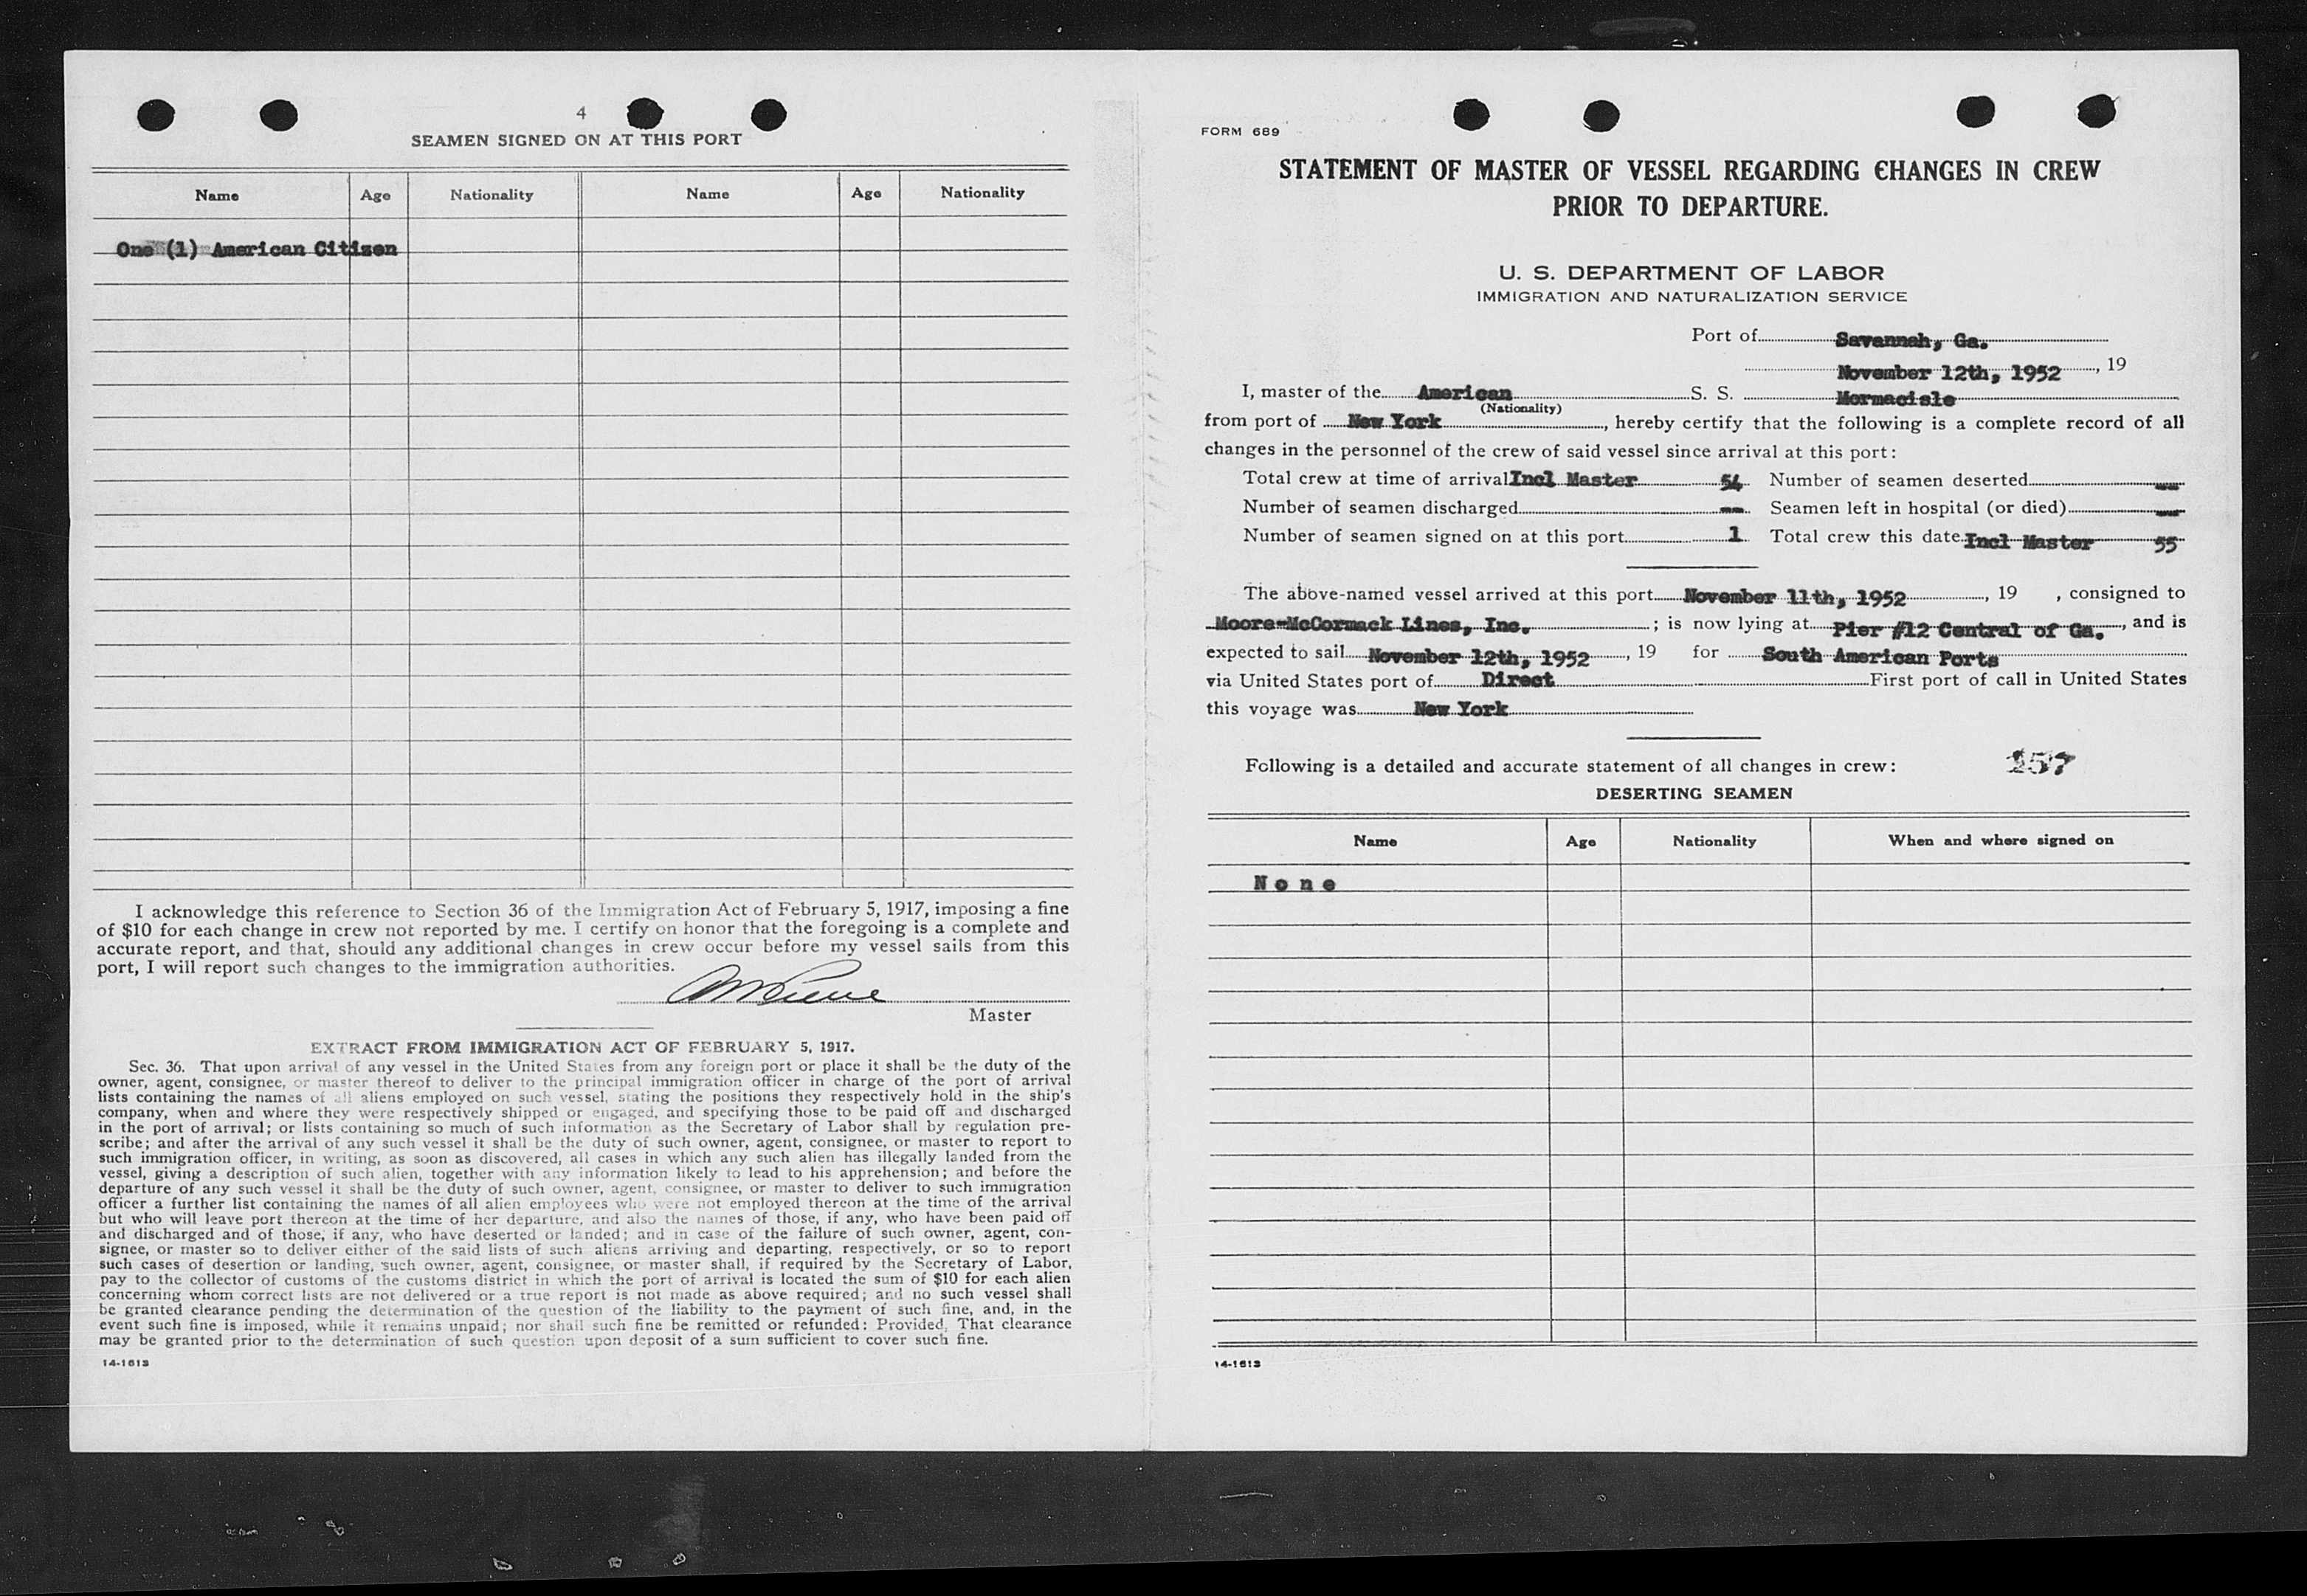 4
SEAMEN SIGNED ON AT THIS PORT
Name Age Nationality Name Age Nationality
One (1) American Citizen
I acknowledge this reference to Section 36 of the Immigration Act of February 5, 1917, imposing a fine
of $10 for each change in crew not reported by me. I certify on honor that the foregoing is a complete and
accurate report, and that, should any additional changes in crew occur before my vessel sails from this
port, I will report such changes to the immigration authorities.
Master
EXTRACT FROM IMMIGRATION ACT OF FEBRUARY 5, 1917.
Sec. 36. That upon arrival of any vessel in the United States from any foreign port or place it shall be the duty of the
owner, agent, consignee, or master thereof to deliver to the principal immigration officer in charge of the port of arrival
lists containing the names of all aliens employed on such vessel, stating the positions they respectively hold in the ship's
company, when and where they were respectively shipped or engaged, and specifying those to be paid off and discharged
in the port of arrival; or lists containing so much of such information as the Secretary of Labor shall by regulation pre-
scribe; and after the arrival of any such vessel it shall be the duty of such owner, agent, consignee, or master to report to
such immigration officer, in writing, as soon as discovered, all cases in which any such alien has illegally landed from the
vessel, giving a description of such alien, together with any information likely to lead to his apprehension; and before the
departure of any such vessel it shall be the duty of such owner, agent, consignee, or master to deliver to such immigration
officer a further list containing the names of all alien employees who were not employed thereon at the time of the arrival
but who will leave port thereon at the time of her departure, and also the names of those, if any, who have been paid off
and discharged and of those, if any, who have deserted or landed; and in case of the failure of such owner, agent, con-
signee, or master so to deliver either of the said lists of such aliens arriving and departing, respectively, or so to report
such cases of desertion or landing, such owner, agent, consignee, or master shall, if required by the Secretary of Labor,
pay to the collector of customs of the customs district in which the port of arrival is located the sum of $10 for each alien
concerning whom correct lists are not delivered or a true report is not made as above required; and no such vessel shall
be granted clearance pending the determination of the question of the liability to the payment of such fine, and, in the
event such fine is imposed, while it remains unpaid; nor shall such fine be remitted or refunded: Provided, That clearance
may be granted prior to the determination of such question upon deposit of a sum sufficient to cover such fine.
14-1613
FORM 689
STATEMENT OF MASTER OF VESSEL REGARDING CHANGES IN CREW
PRIOR TO DEPARTURE.
U. S. DEPARTMENT OF LABOR
IMMIGRATION AND NATURALIZATION SERVICE
Port of Savannah, Ga.
November 12th, 1952, 19
I, master of the American S. S. Mormacisle
(Nationality)
from port of New York, hereby certify that the following is a complete record of all
changes in the personnel of the crew of said vessel since arrival at this port:
Total crew at time of arrival Incl Master 54 Number of seamen deserted --
Number of seamen discharged -- Seamen left in hospital (or died) --
Number of seamen signed on at this port 1 Total crew this date Incl Master 55
The above-named vessel arrived at this port November 11th, 1952, 19 , consigned to
Moore-McCormack Lines, Inc. ; is now lying at Pier #12 Central of Ga., and is
expected to sail November 12th, 1952, 19 for South American Ports
via United States port of Direct First port of call in United States
this voyage was New York
Following is a detailed and accurate statement of all changes in crew: 257
DESERTING SEAMEN
Name Age Nationality When and where signed on
None
14-1613